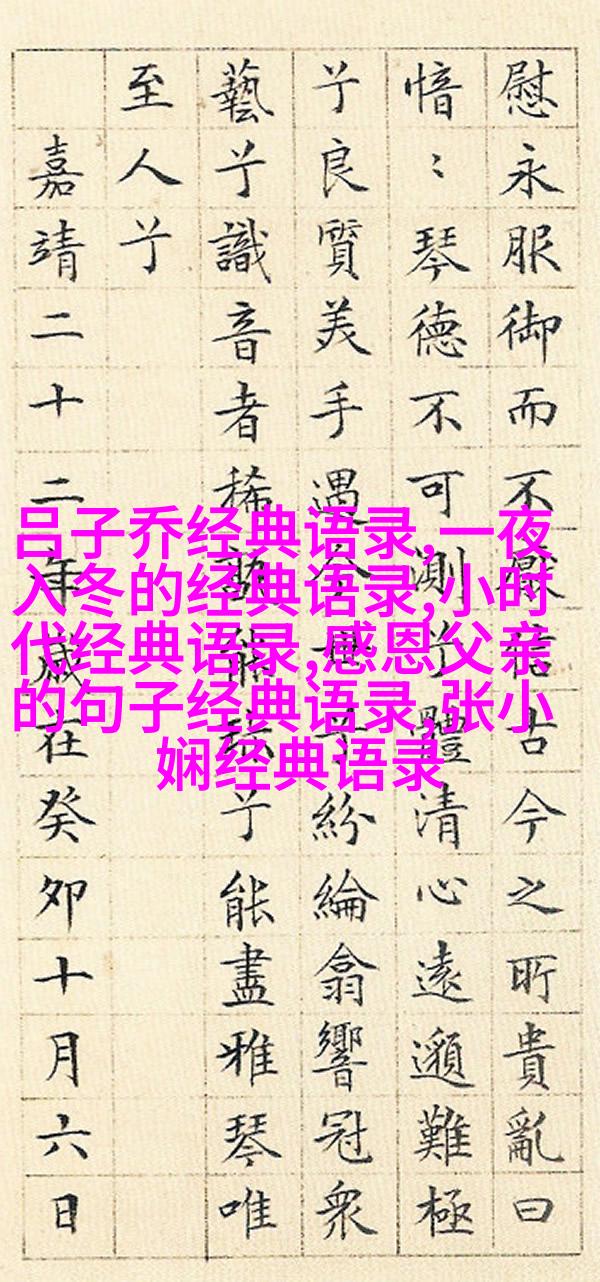 慰永服御而不厭信古今之所貴亂曰
愔〻琴德不可測兮體清心遠邈難極
兮良質美手遇今世兮紛綸翕響冠衆
藝兮識音者稀孰能珍兮能盡雅琴唯
至人兮
嘉靖二十二年歲在癸卯十月六日
吕子乔经典语录,一夜
入冬的经典语录,小时
代经典语录,感恩父亲
的句子经典语录,张小
娴经典语录